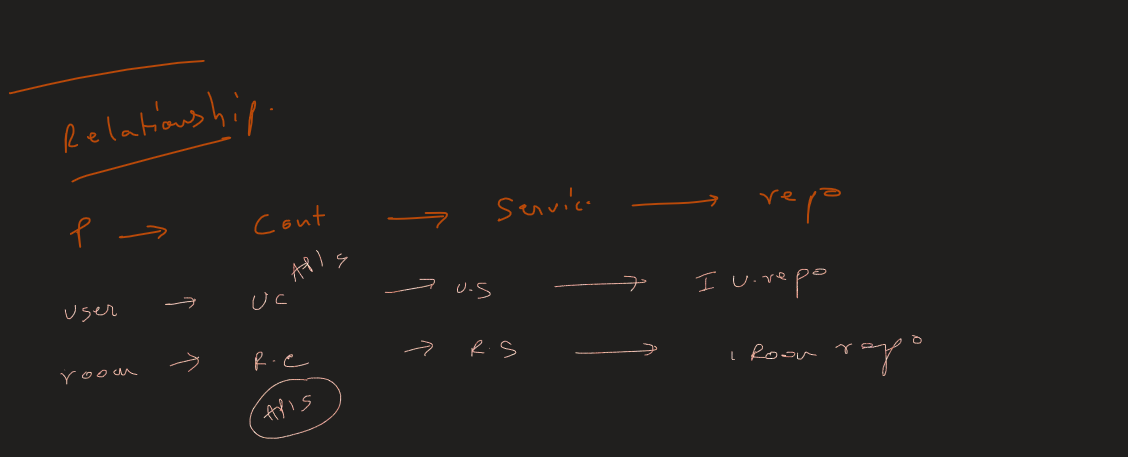 Relationship.
P → Cont → Servic. → repo
APIs
user → UC → U.S → I U.repo
room → R.C → R.S → I Room repo
APIS